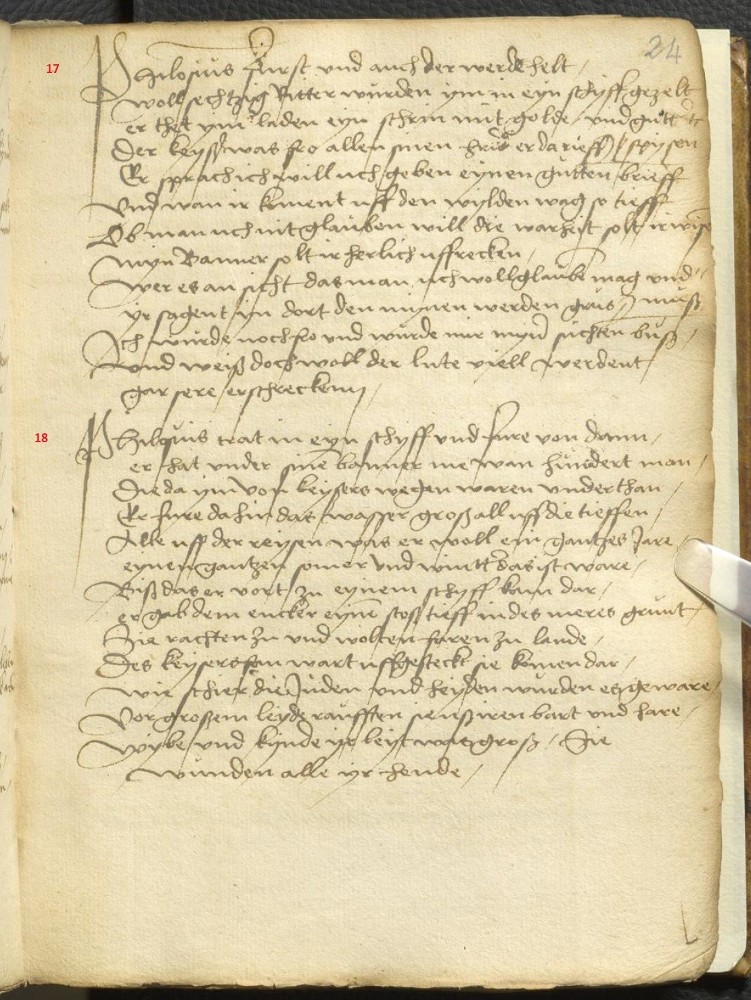 24
17
Philosius furst und auch der werde helt /
woll sechtzig Ritter wurden ym in eyn schyff gezelt
er thet ym laden eyn schrin mit golde und gutt
Der keyser was fro allen sinen er da rieff / spysen
Er sprach ich will uch geben eynen gutten brieff
Und wan ir koment uff den wylden wag so tieff
Ob man uch nit glauben will die warheit solt ir wise
myn Banner solt ir herlich uffrecken /
wer es an sicht das man uch woll glaube mag und /
yr sagent yn dort den mynen werden grus / muß
Ich wurde noch fro und wurde mir myn suchten buß /
und weiß doch woll der lute viell werdent
gar sere erschrecken /
18
Philosius trat in eyn schyff und fure von dann /
er hat under sine banner me wan hundert man /
Die da ym von keysers wegen waren underthan /
Er fure da hin das wasser groß all uff die tieffen /
Alle uff der reysen was er woll ein gantzes Jare /
eynen gantzen somer und wintter das ist ware /
Biß das er vort zu eynem schyff kam dar /
er gab dem encker eyne stoß tieff in des meres grunt /
Sie rachten zu und wolten faren zu lande /
Des keysers fan wart uffgesteckt sie komen dar /
wie schier die Juden und heyden wurden es geware /
Vor großem leyde raufften sie uß iren bart und hare /
wybe und kynde yr leyt was groß / Sie
wunden alle yr hende /